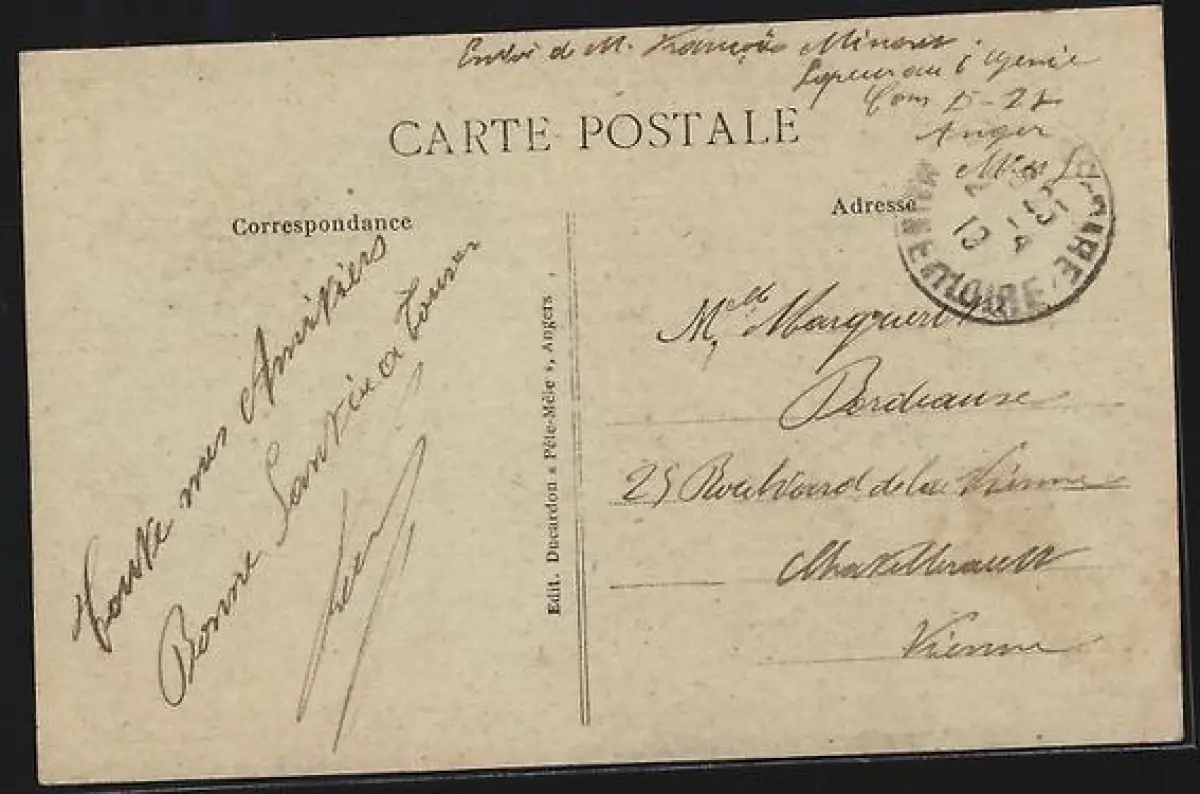 Envoi de M. François
Sapeur au 6 Génie
Angers
CARTE POSTALE
Correspondance
Adresse
Toute mes Amitiers
Bonne Santé a Touser
Edit. Ducardon « Pêle-Mêle », Angers
Melle Marguerite
Bordeause
25 Boulvard de la Vienne
Chatellerault
Vienne